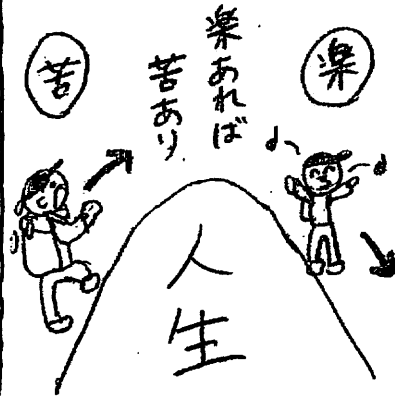 楽
楽あれば
苦あり
苦
人生